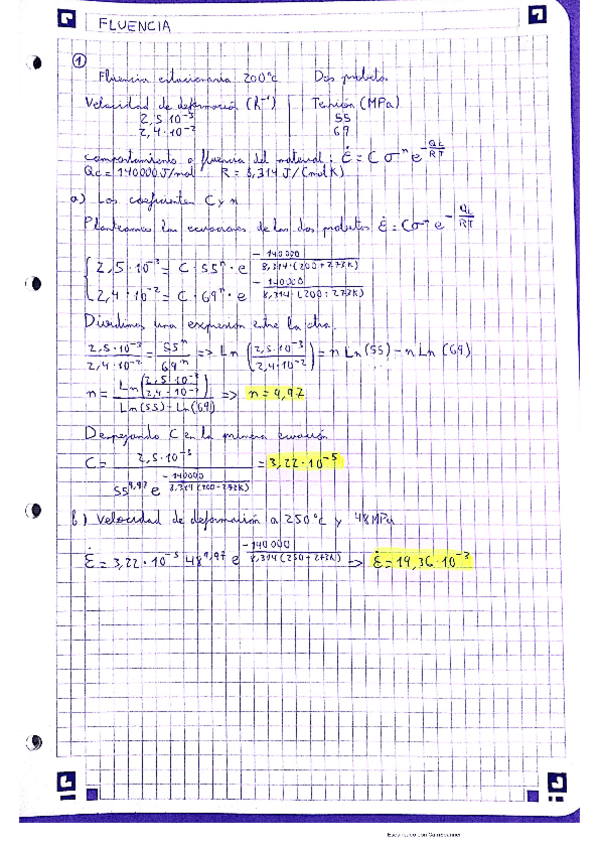 FLUENCIA
①
Fluencia estacionaria 200°C Dos probetas.
Velocidad de deformación (h⁻¹) Tensión (MPa)
2,5·10⁻³ 55
2,4·10⁻² 69
comportamiento a fluencia del material: ε̇ = C σⁿ e^(-Qc/RT)
Qc = 140000 J/mol R = 8,314 J/(mol K)
a) Los coeficientes C y n
Planteamos las ecuaciones de las dos probetas ε̇ = Cσⁿ e^(-Qc/RT)
2,5·10⁻³ = C · 55ⁿ · e^(-140000/8,314·(200+273K))
2,4·10⁻² = C · 69ⁿ · e^(-140000/8,314·(200+273K))
Dividimos una expresión entre la otra.
2,5·10⁻³/2,4·10⁻² = 55ⁿ/69ⁿ => Ln(2,5·10⁻³/2,4·10⁻²) = n Ln(55) - n Ln(69)
n = Ln(2,5·10⁻³/2,4·10⁻²)/Ln(55) - Ln(69) => n = 9,97
Despejando C en la primera ecuación
C = 2,5·10⁻³/55^9,97 e^(-140000/8,314(200+273K)) = 3,22·10⁻⁵
b) Velocidad de deformación a 250°C y 48MPa
ε̇ = 3,22·10⁻⁵ 48^9,97 e^(-140000/8,314(250+273K)) -> ε̇ = 19,36·10⁻³
Escaneado con CamScanner